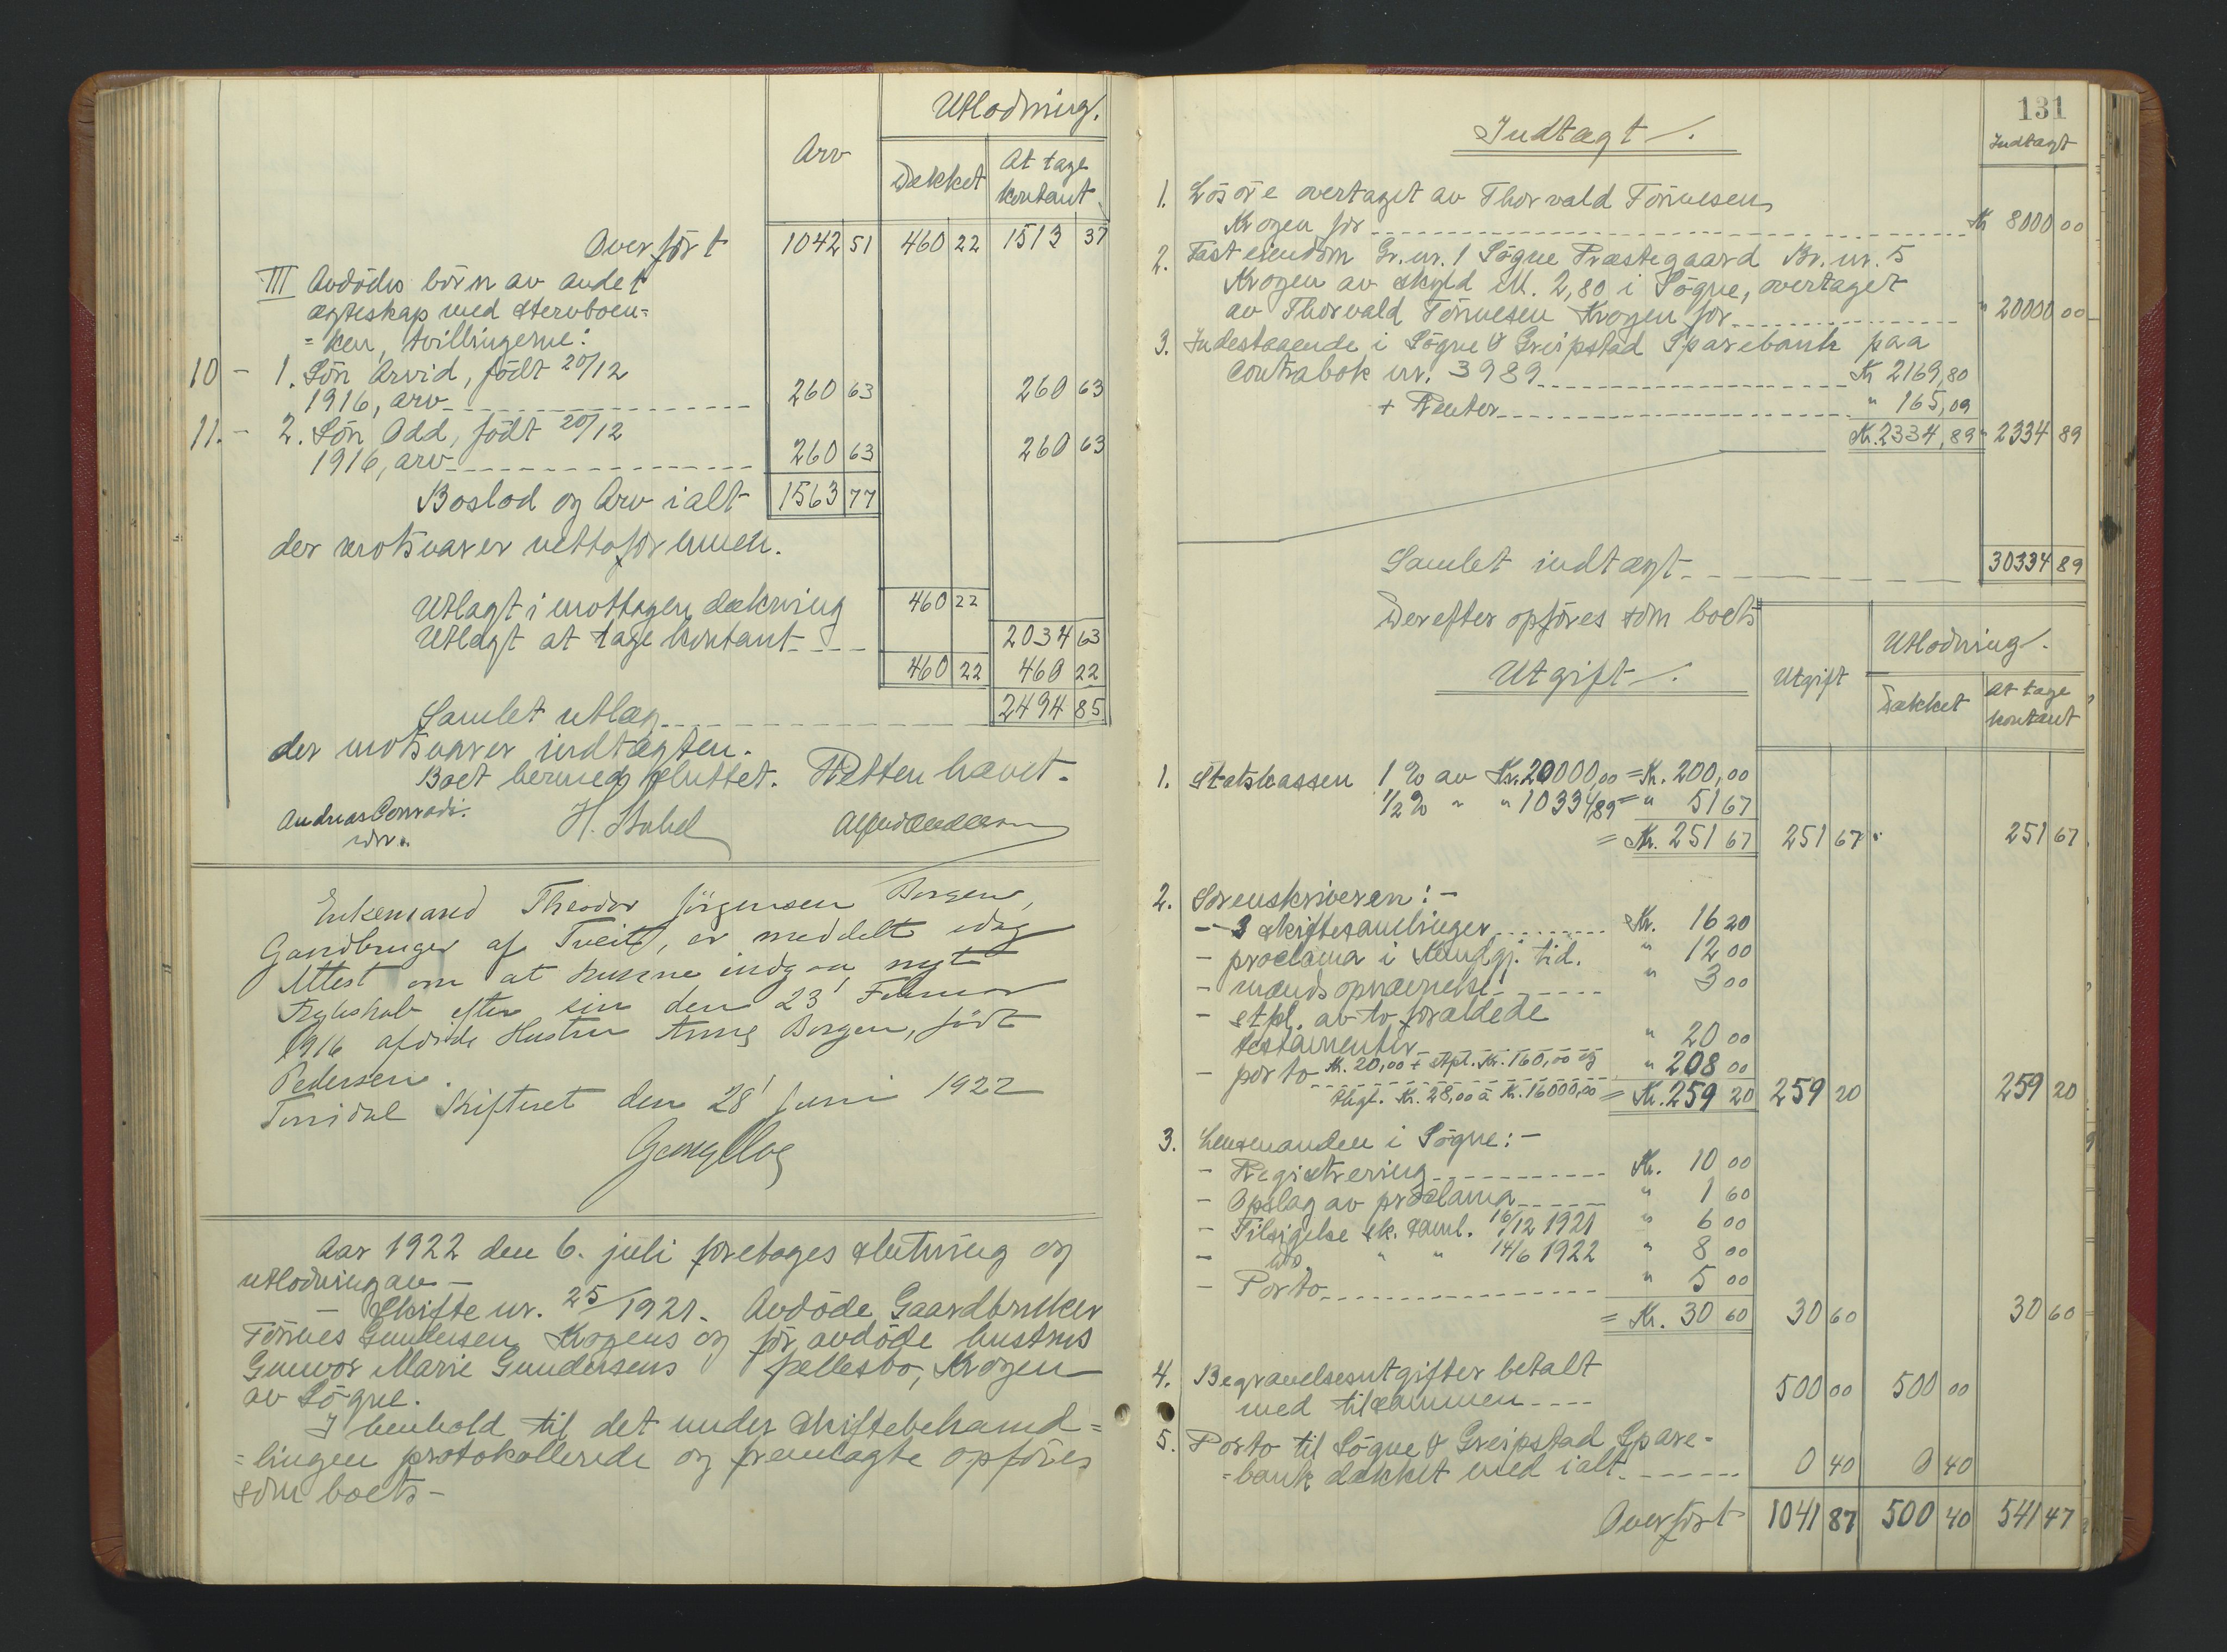 Utlodning.
Arv
Dækket
At tage
kontant.
Overført 1042 51 460 22 1513 37
III Avdødes börn av andet
ægteskap med stervboen=
=ken, tvillingerne:
10 - 1. Sön Arvid, födt 20/12
1916, arv 260 63 260 63
11. - 2. Sön Odd, födt 20/12
1916, arv 260 63 260 63
Boslod og Arv ialt 1563 77
der motsvarer nettoformuen.
Utlagt i mottagen dækning 460 22
Utlagt at tage kontant 2034 63
460 22 460 22
Samlet utlæg 2494 85
der motsvarer indtægten.
Boet dermed sluttet. Retten hævet.
Andreas Conradi. H. Stubel
Enkemand Theodor Jörgensen Borgen,
Gaardbruger af Tveit, er meddelt idag
Attest om at kunne indgaa nyt
Ægteskab efter sin den 23' Februar
1916 afdöde Hustru Anne Borgen, födt
Pedersen.
Torridal Skifteret den 28' Juni 1922
Aar 1922 den 6. juli foretages slutning og
utlodning av -
- Skifte nr. 25/1921. Avdöde Gaardbruker
Törres Gundersen Krogens og för avdöde hustrus
Gunvor Marie Gundersens fællesbo, Krogen
av Sögne.
I henhold til det under skiftebehand=
=lingen protokollerede og fremlagte opföres
som boets -
131
Indtægt.
Indtægt
1. Lösöre overtaget av Thorvald Törresen
Krogen for Kr 8000 00
2. Fast eiendom Gr. nr. 1 Sögne Præstegaard Br. nr. 5
Krogen av skyld M. 2,80 i Sögne, overtaget
av Thorvald Törresen Krogen for " 20000 00
3. Indestaaende i Sögne & Greipstad Sparebank paa
Contrabok nr. 3989 Kr 2169,80
+ Renter " 165,09
Kr. 2334,89 " 2334 89
Samlet indtægt 30334 89
Derefter opföres som boets
Utgift.
Utgift
Utlodning.
Dækket
At tage
kontant
1. Statskassen 1% av Kr. 20000,00 = Kr. 200,00
1/2% " " 10334,89 = " 51 67
= Kr. 251 67 251 67 251 67
2. Sorenskriveren: -
- 3 skiftesamlinger Kr. 16 20
- proclama i Kundgj. tid. " 12 00
- mænds opnævnelse " 3 00
- stpl. av to forældede
testamenter " 20 00
- porto Kr. 20,00 + stpl. Kr. 160,00 og " 208 00
Kr. 28,00 a Kr. 16000,00 = Kr. 259 20 259 20 259 20
3. Lensmanden i Sögne: -
- Registrering Kr. 10 00
- Opslag av proclama " 1 60
- Tilsigelse sk. saml. 16/12 1921 " 6 00
- do. " " 14/6 1922 " 8 00
- Porto " 5 00
= Kr. 30 60 30 60 30 60
4. Begravelsesutgifter betalt
med tilsammen 500 00 500 00
5. Porto til Sögne & Greipstad Spare-
=bank dækket med ialt 0 40 0 40
Overfört 1041 87 500 40 541 47